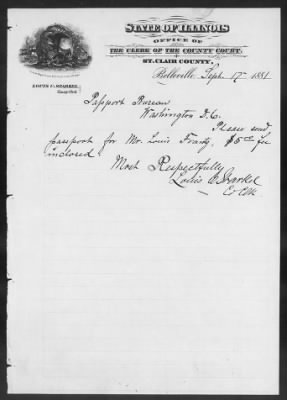 STATE OF ILLINOIS
OFFICE OF
THE CLERK OF THE COUNTY COURT,
ST. CLAIR COUNTY.
LOUIS C. STARKEL,
County Clerk
Belleville, Sept. 17 1881
Passport Bureau
Washington D.C.
Please send
passport for Mr. Louis Frantz, $5.00 fee
inclosed.
Most Respectfully
Louis C. Starkel
Co Clk